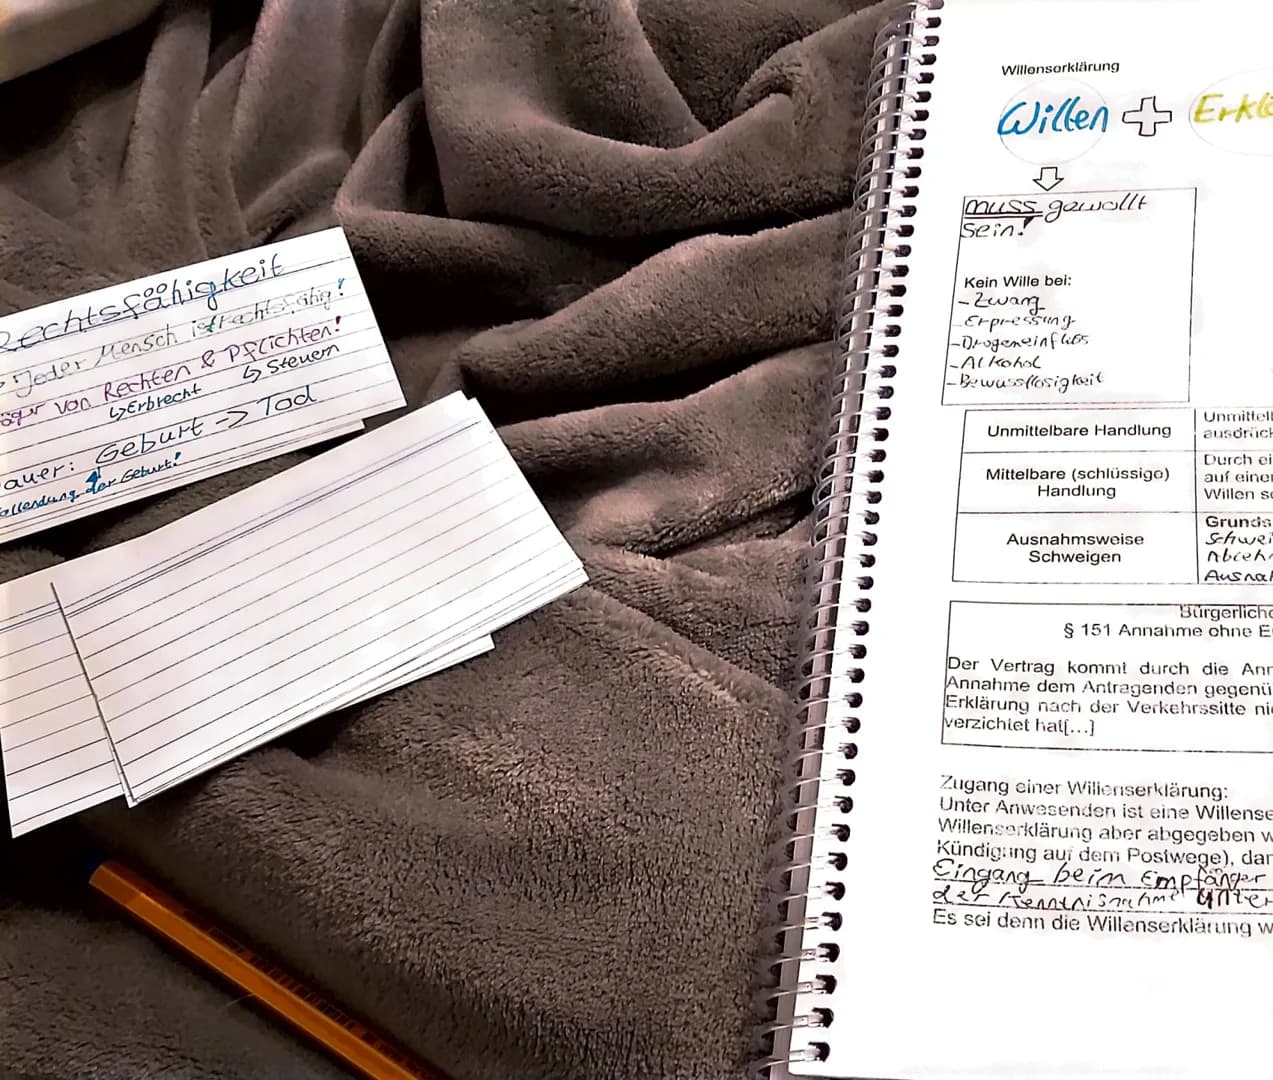 Rechtsfähigkeit
Jeder Mensch ist Rechtsfähig!
von Rechten & Pflichten!
↳Erbrecht ↳Steuern
Geburt -> Tod
der Geburt!
Willenserklärung
Willen + Erklä
muss gewollt
sein!
Kein Wille bei:
- Zwang
- Erpressung
- Drogeneinfluss
- Alkohol
- Bewusstlosigkeit
Unmittelbare Handlung
Unmittel
ausdrück
Mittelbare (schlüssige)
Handlung
Durch ei
auf einen
Willen sc
Ausnahmsweise
Schweigen
Grunds
Schwei
Ablehn
Ausnah
Bürgerliche
§ 151 Annahme ohne E
Der Vertrag kommt durch die Ann
Annahme dem Antragenden gegenü
Erklärung nach der Verkehrssitte ni
verzichtet hat[...]
Zugang einer Willenserklärung:
Unter Anwesenden ist eine Willense
Willenserklärung aber abgegeben w
Kündigung auf dem Postwege), dan
Eingang beim Empfänger
der Kenntnisnahme unter
Es sei denn die Willenserklärung w